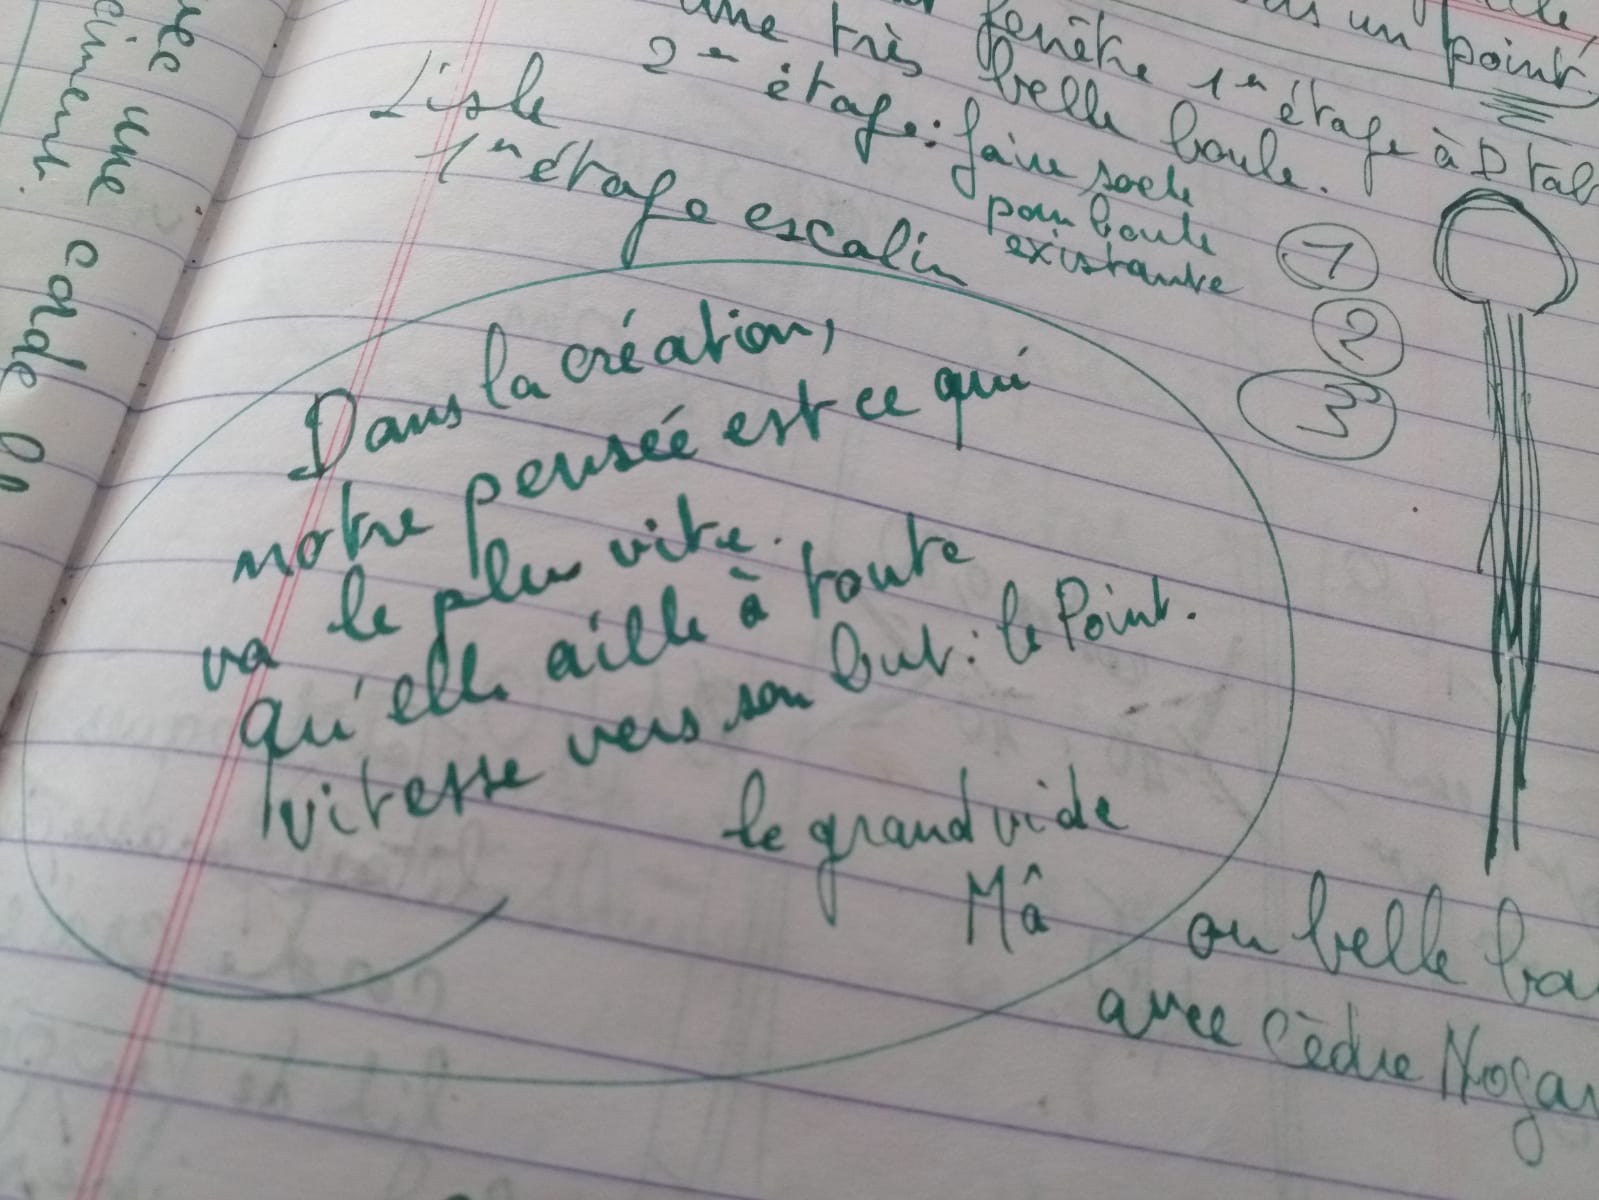 un point.
fenêtre 1er étage à D
une très belle boule.
2me étage: faire socle
pour boule
existante
L'isle
1er étage escalin
1
2
3
Dans la création,
notre pensée est ce qui
va le plus vite.
qu'elle aille à toute
vitesse vers son but: le Point.
le grand vide
Mâ
ou belle
avec Cèdre
une corde